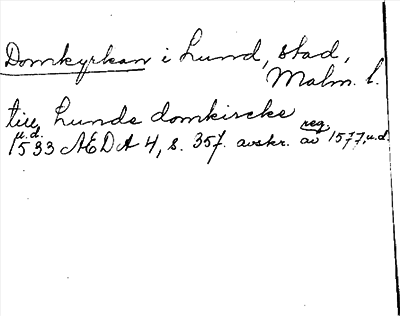 Domkyrkan i Lund, stad,
Malm. l.
till Lunde domkircke
u.d.
1533 AEDA 4, s. 357. avskr. av reg. 1577, u.d.